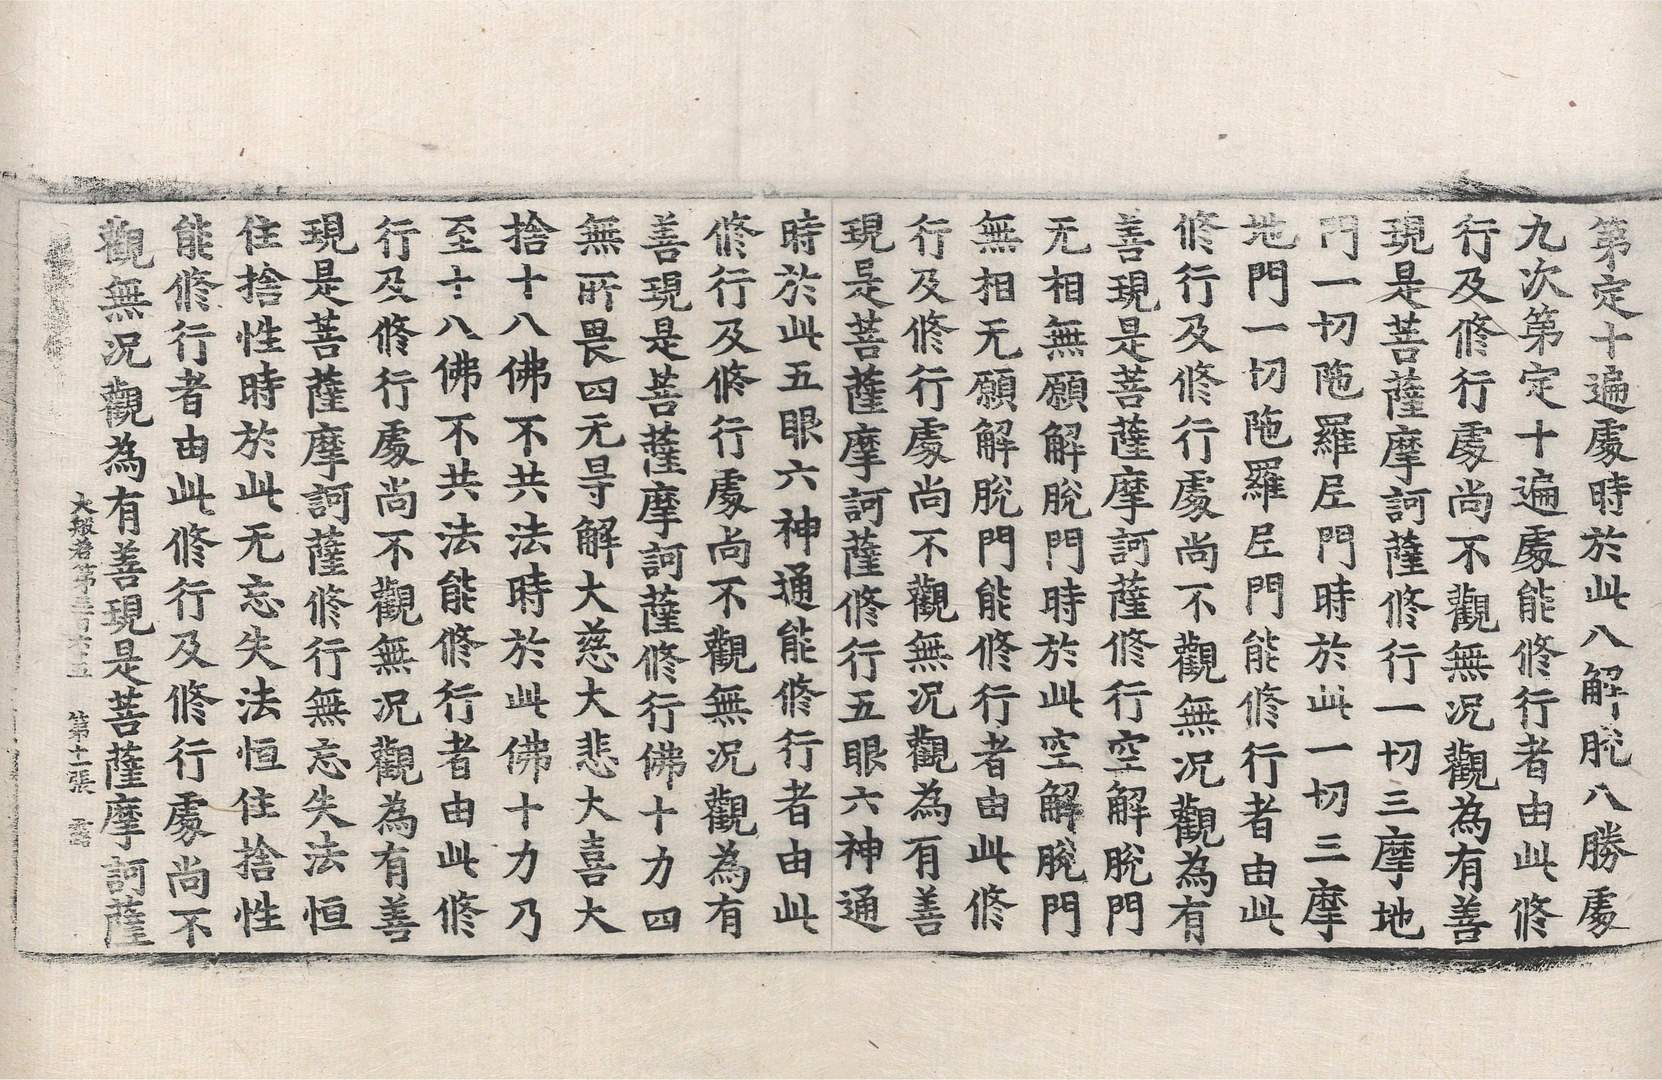 第定十遍處時於此八解脫八勝處
九次第定十遍處能修行者由此修
行及修行處尚不觀無況觀為有善
現是菩薩摩訶薩修行一切三摩地
門一切陁羅尼門時於此一切三摩
地門一切陁羅尼門能修行者由此
修行及修行處尚不觀無況觀為有
善現是菩薩摩訶薩修行空解脫門
无相無願解脫門時於此空解脫門
無相无願解脫門能修行者由此修
行及修行處尚不觀無況觀為有善
現是菩薩摩訶薩修行五眼六神通
時於此五眼六神通能修行者由此
修行及修行處尚不觀無況觀為有
善現是菩薩摩訶薩修行佛十力四
無所畏四无㝵解大慈大悲大喜大
捨十八佛不共法時於此佛十力乃
至十八佛不共法能修行者由此修
行及修行處尚不觀無況觀為有善
現是菩薩摩訶薩修行無忘失法恒
住捨性時於此无忘失法恒住捨性
能修行者由此修行及修行處尚不
觀無況觀為有善現是菩薩摩訶薩
大般若第三百六十五 第十二張